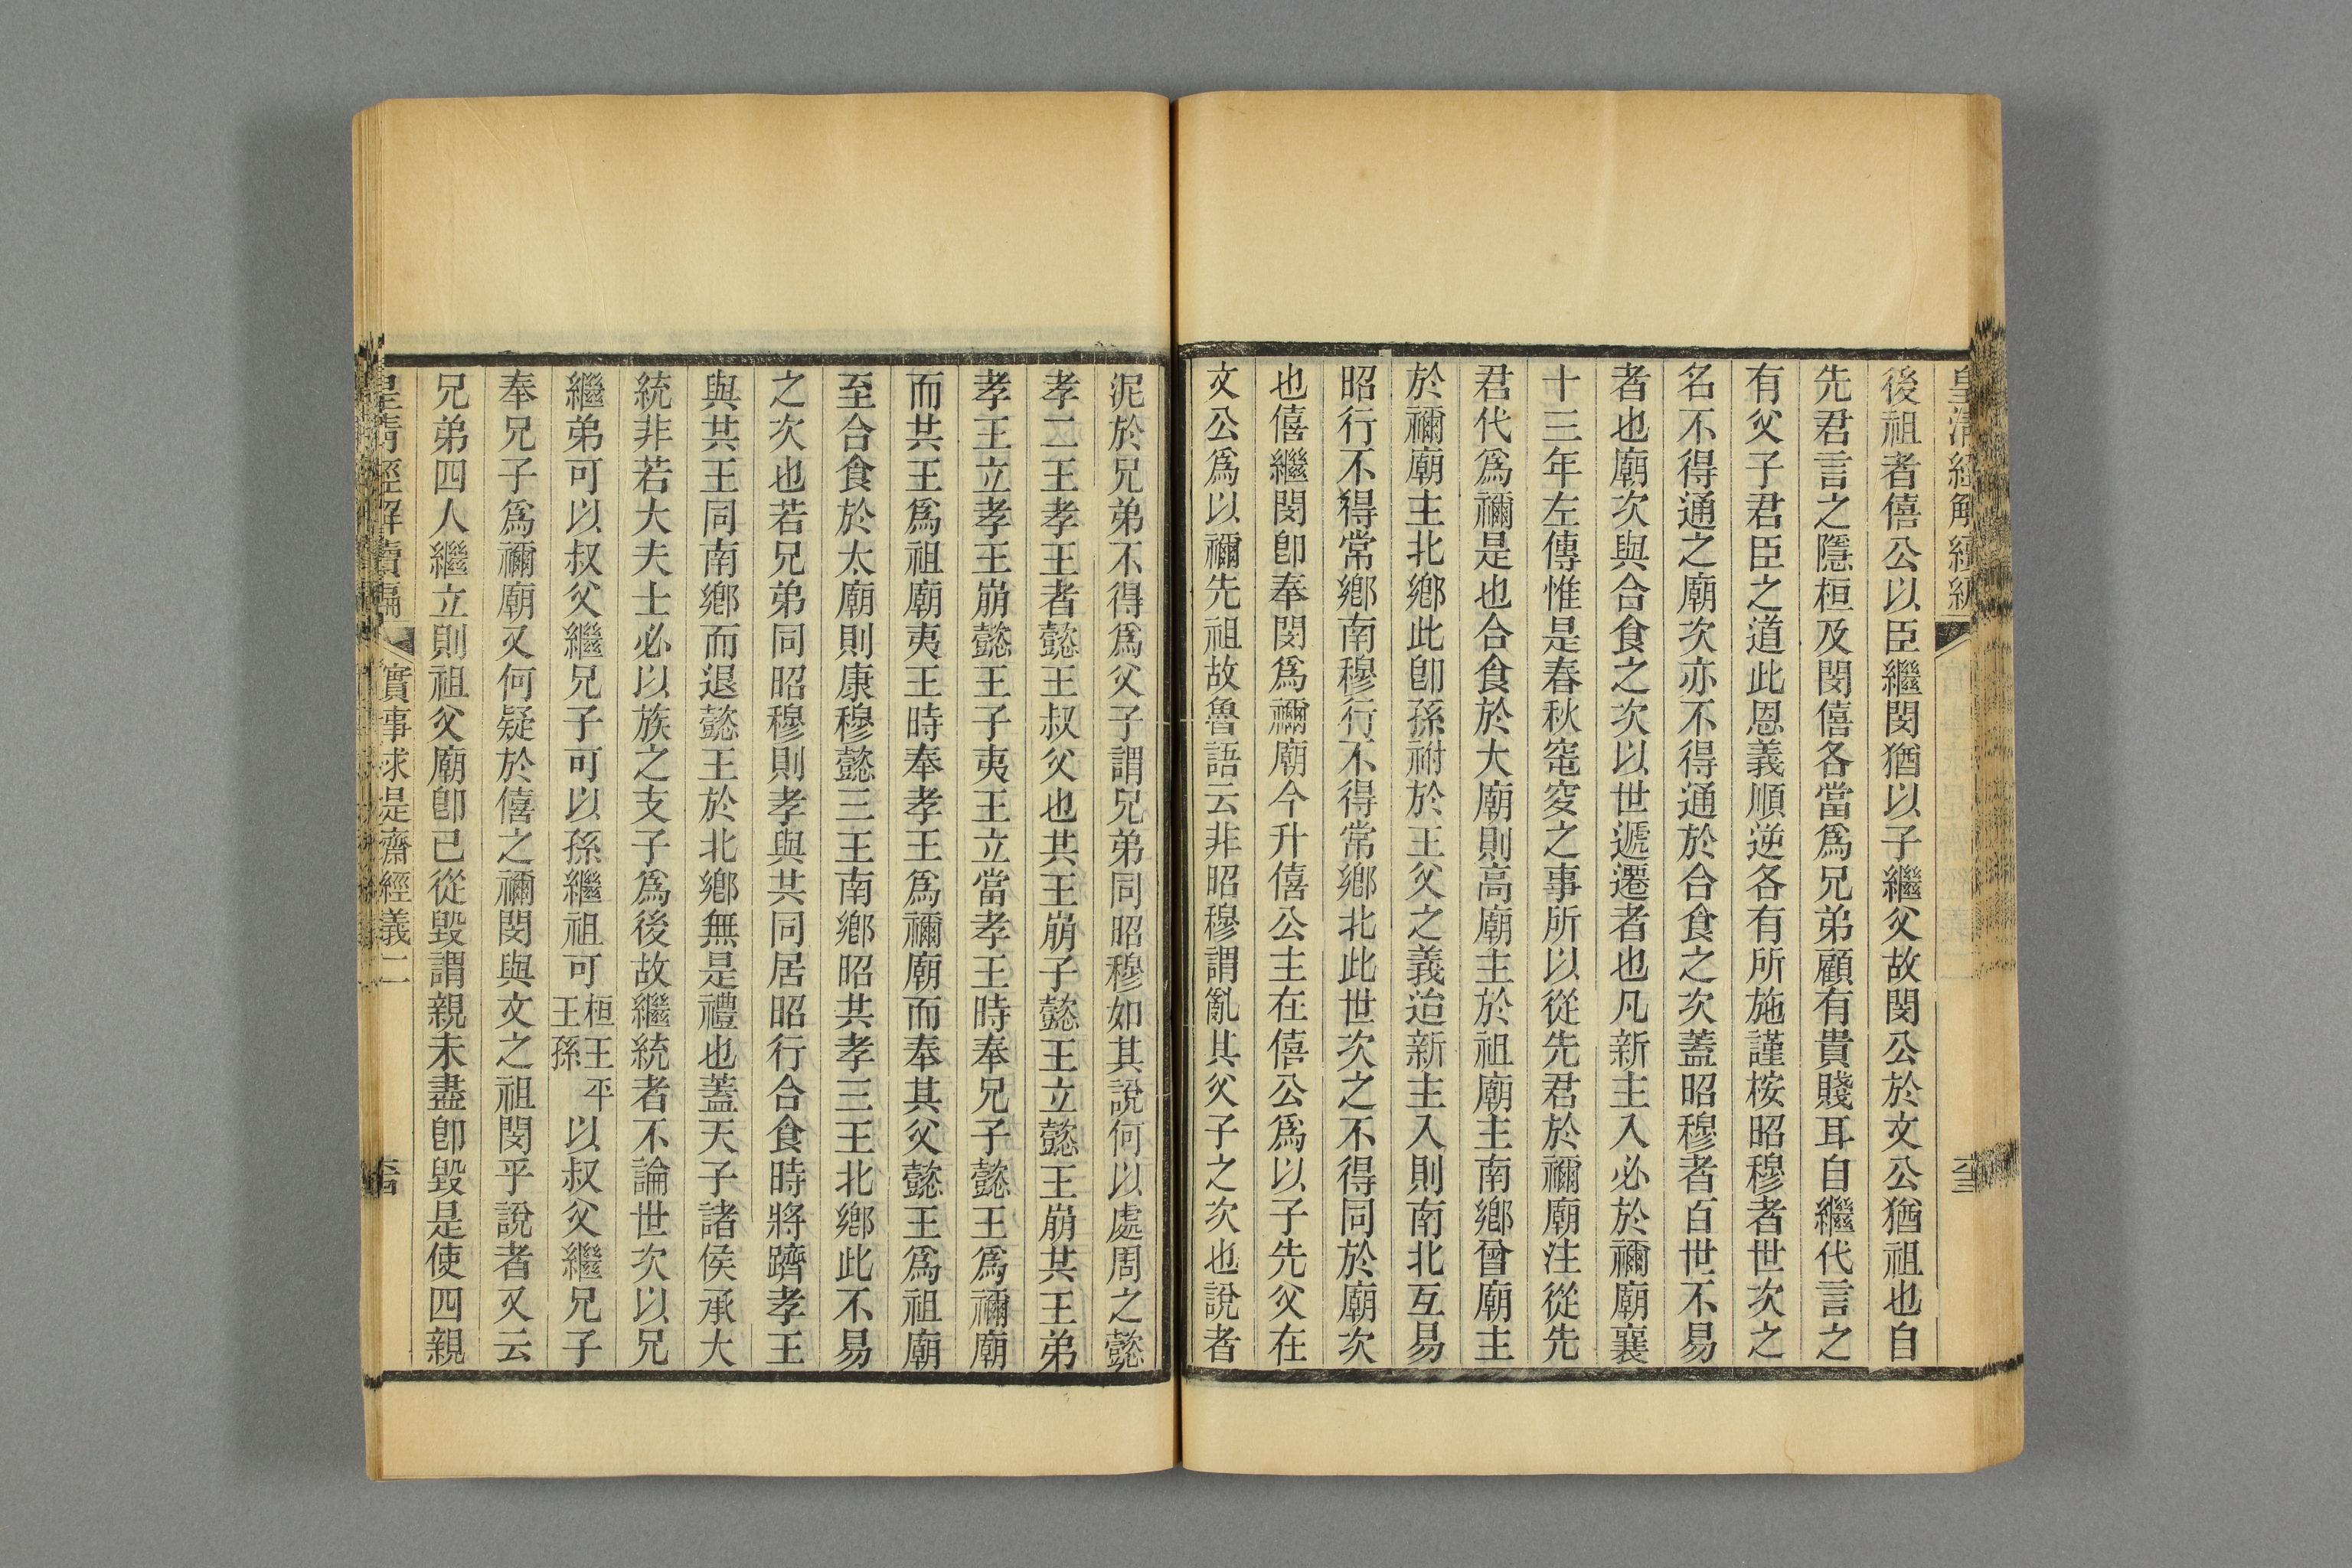 皇清經解續編
後祖者僖公以臣繼閔猶以子繼父故閔公於文公猶祖也自
先君言之隱桓及閔僖各當爲兄弟顧有貴賤耳自繼代言之
有父子君臣之道此恩義順逆各有所施謹桉昭穆者世次之
名不得通之廟次亦不得通於合食之次蓋昭穆者百世不易
者也廟次與合食之次以世遞遷者也凡新主入必於禰廟襄
十三年左傳惟是春秋窀穸之事所以從先君於禰廟注從先
君代爲禰是也合食於大廟則高廟主於祖廟主南鄉曾廟主
於禰廟主北鄉此卽孫祔於王父之義迨新主入則南北互易
昭行不得常鄉南穆行不得常鄉北此世次之不得同於廟次
也僖繼閔卽奉閔爲禰廟今升僖公主在僖公爲以子先父在
文公爲以禰先祖故魯語云非昭穆謂亂其父子之次也說者
泥於兄弟不得爲父子謂兄弟同昭穆如其說何以處周之懿
孝二王孝王者懿王叔父也共王崩子懿王立懿王崩共王弟
孝王立孝王崩懿王子夷王立當孝王時奉兄子懿王爲禰廟
而共王爲祖廟夷王時奉孝王爲禰廟而奉其父懿王爲祖廟
至合食於太廟則康穆懿三王南鄉昭共孝三王北鄉此不易
之次也若兄弟同昭穆則孝與共同居昭行合食時將躋孝王
與共王同南鄉而退懿王於北鄉無是禮也蓋天子諸侯承大
統非若大夫士必以族之支子爲後故繼統者不論世次以兄
繼弟可以叔父繼兄子可以孫繼祖可桓王平王孫以叔父繼兄子
奉兄子爲禰廟又何疑於僖之禰閔與文之祖閔乎說者又云
兄弟四人繼立則祖父廟卽已從毀謂親未盡卽毀是使四親
皇清經解續編 實事求是齋經義二 六四